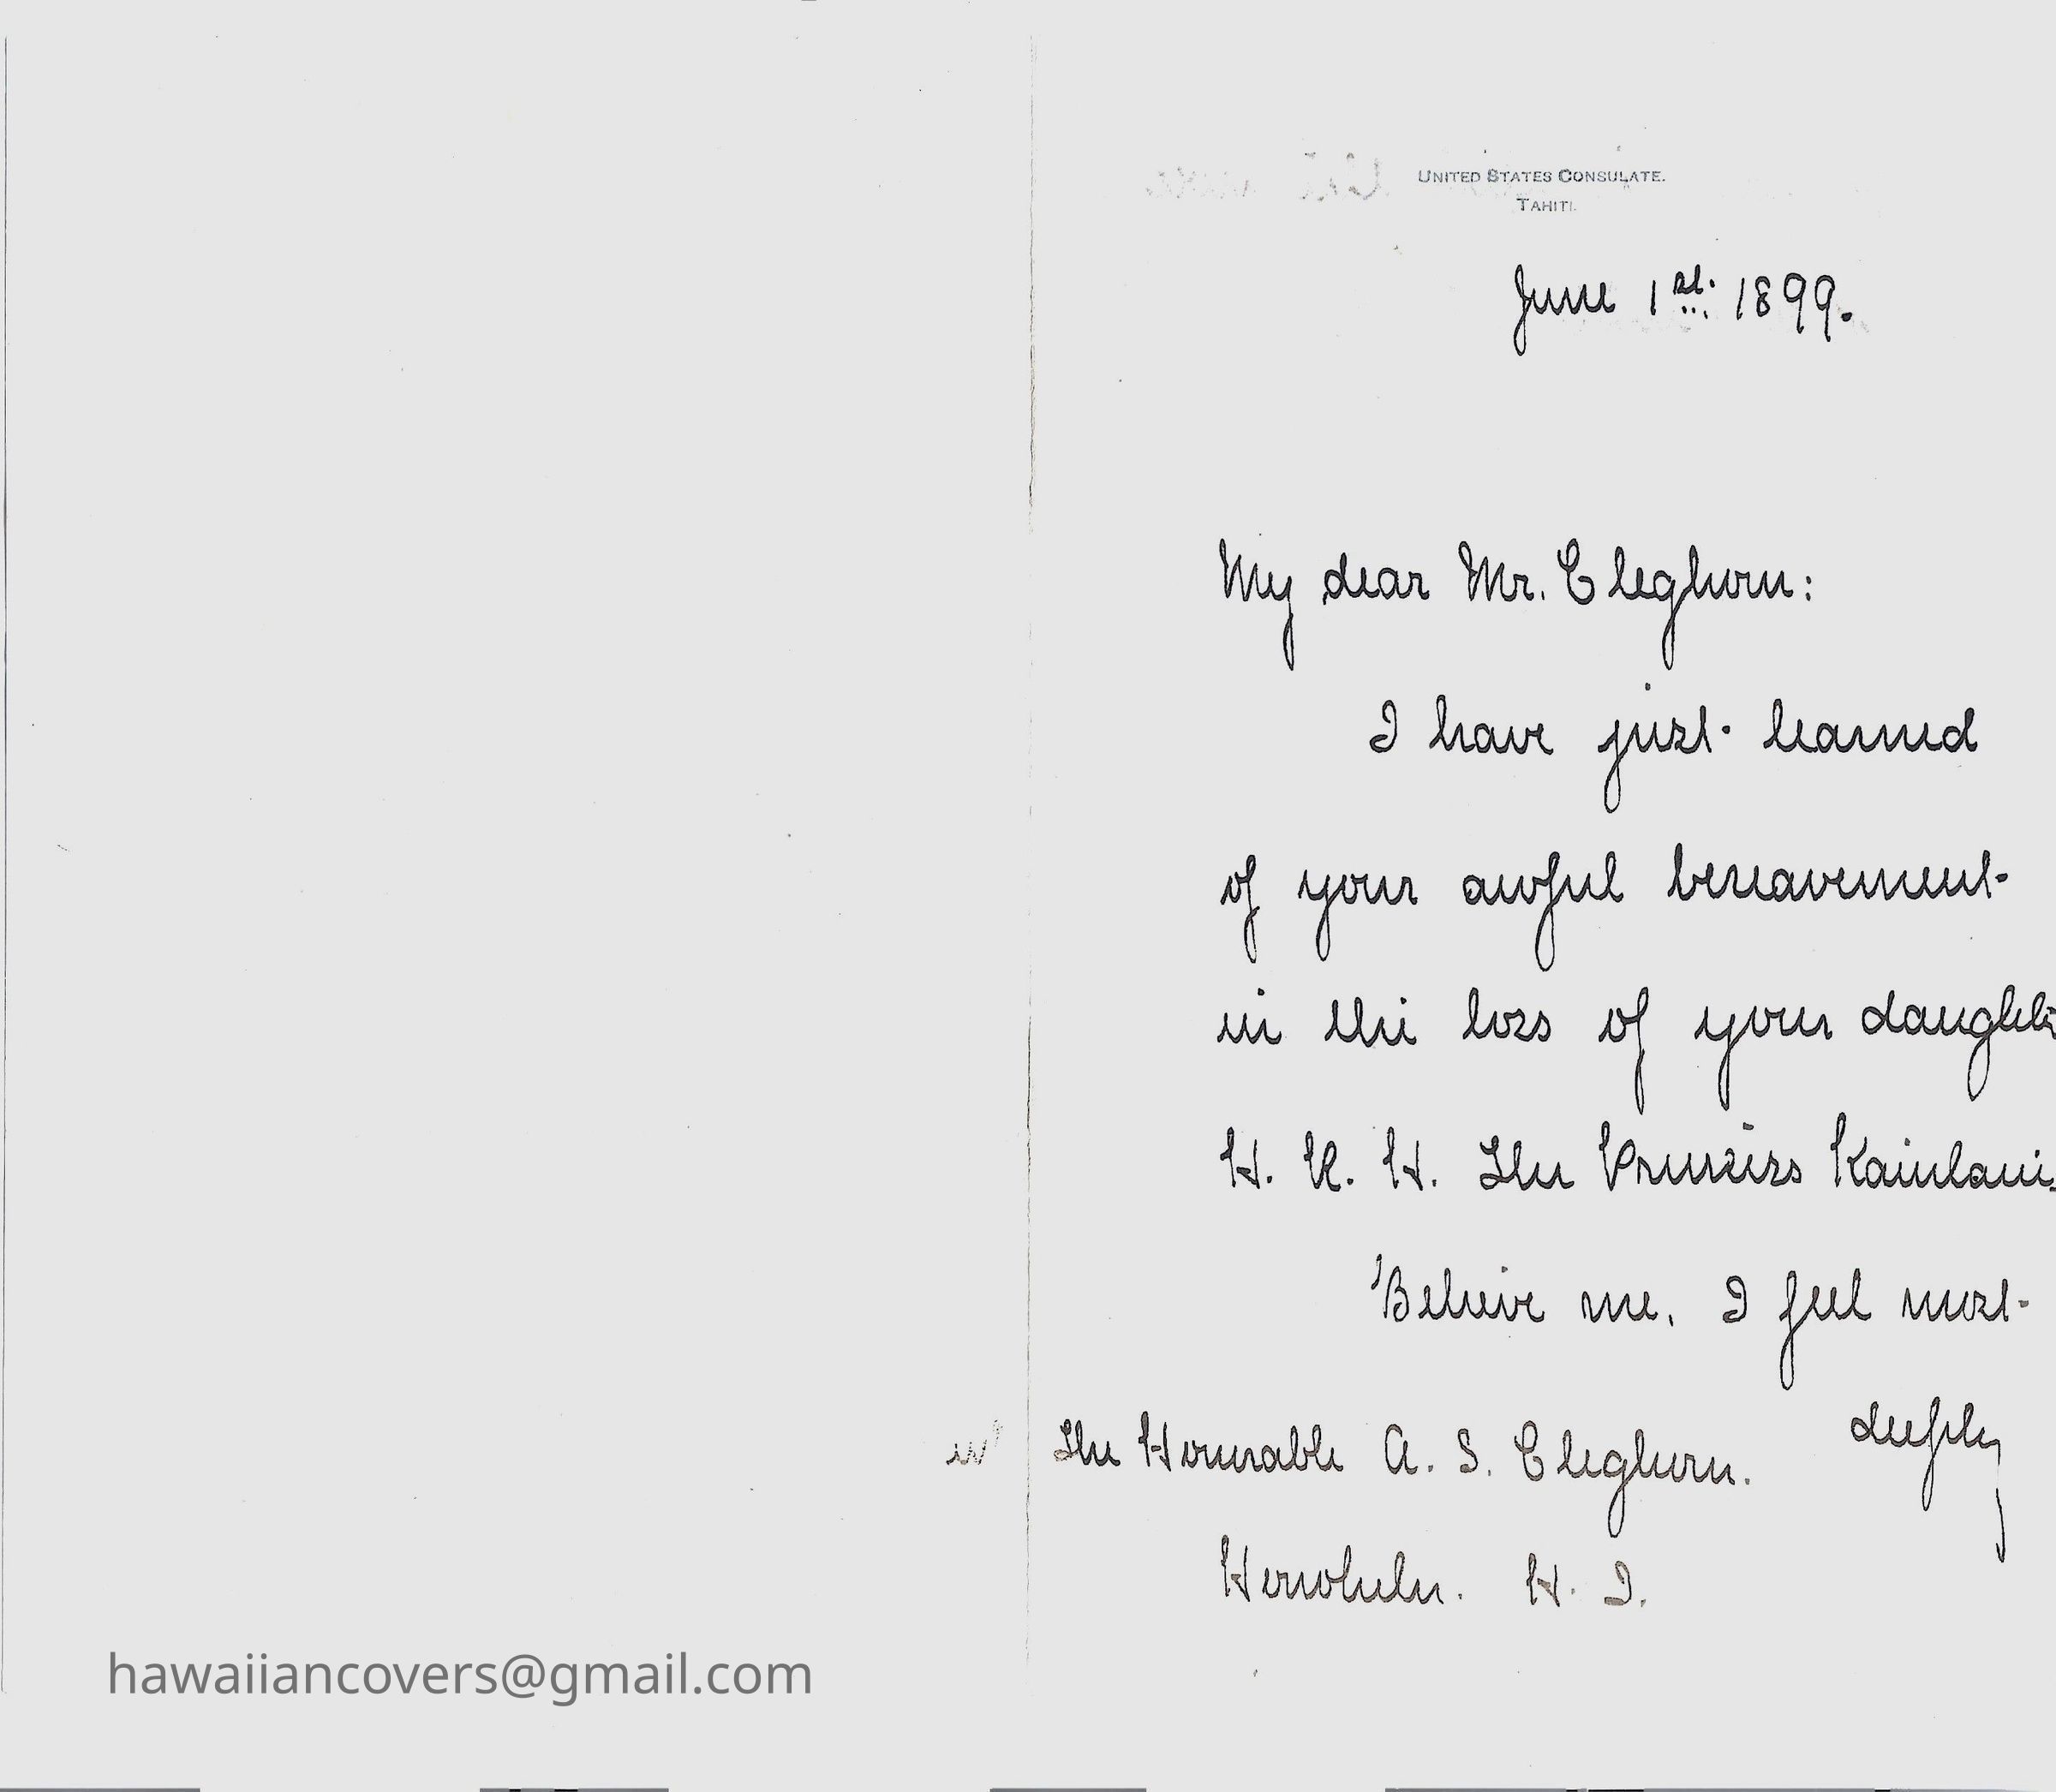 UNITED STATES CONSULATE.
TAHITI.
June 1st. 1899.
My dear Mr. Cleghorn:
I have just learned
of your awful bereavement
in the loss of your daughter
H. R. H. The Princess Kaiulani.
Believe me, I feel most
deeply
The Honorable A. S. Cleghorn.
Honolulu. H. I.
hawaiiancovers@gmail.com